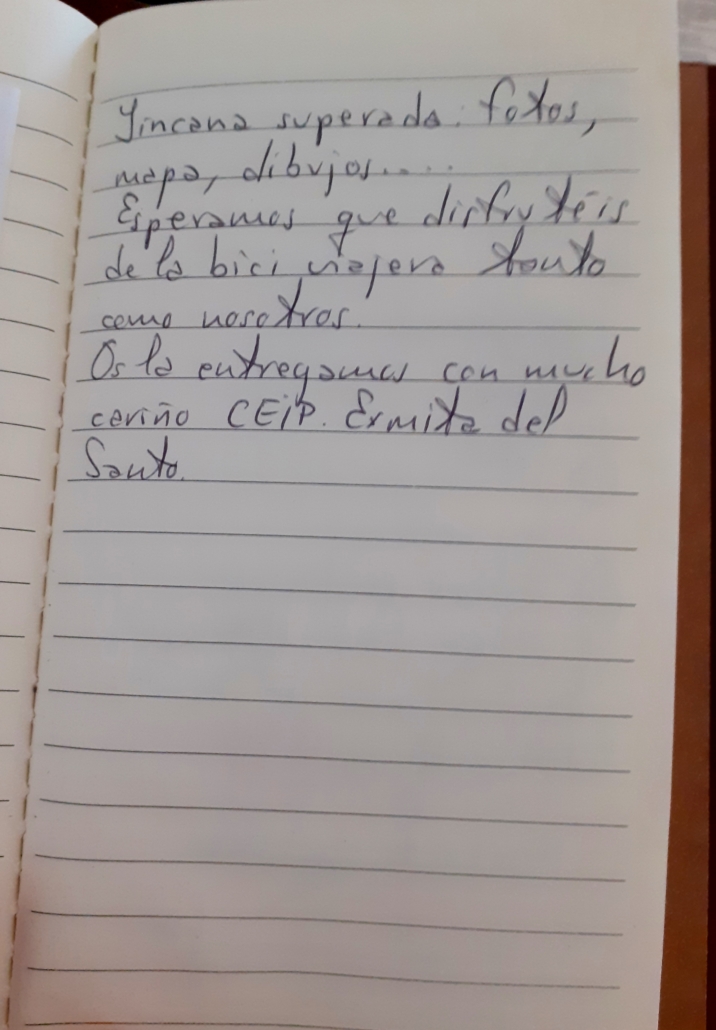 Yincana superada: fotos,
mapa, dibujos.....
Esperamos que disfrutéis
de la bici viajera tanto
como nosotros.
Os la entregamos con mucho
cariño CEiP. Ermita del
Santo.